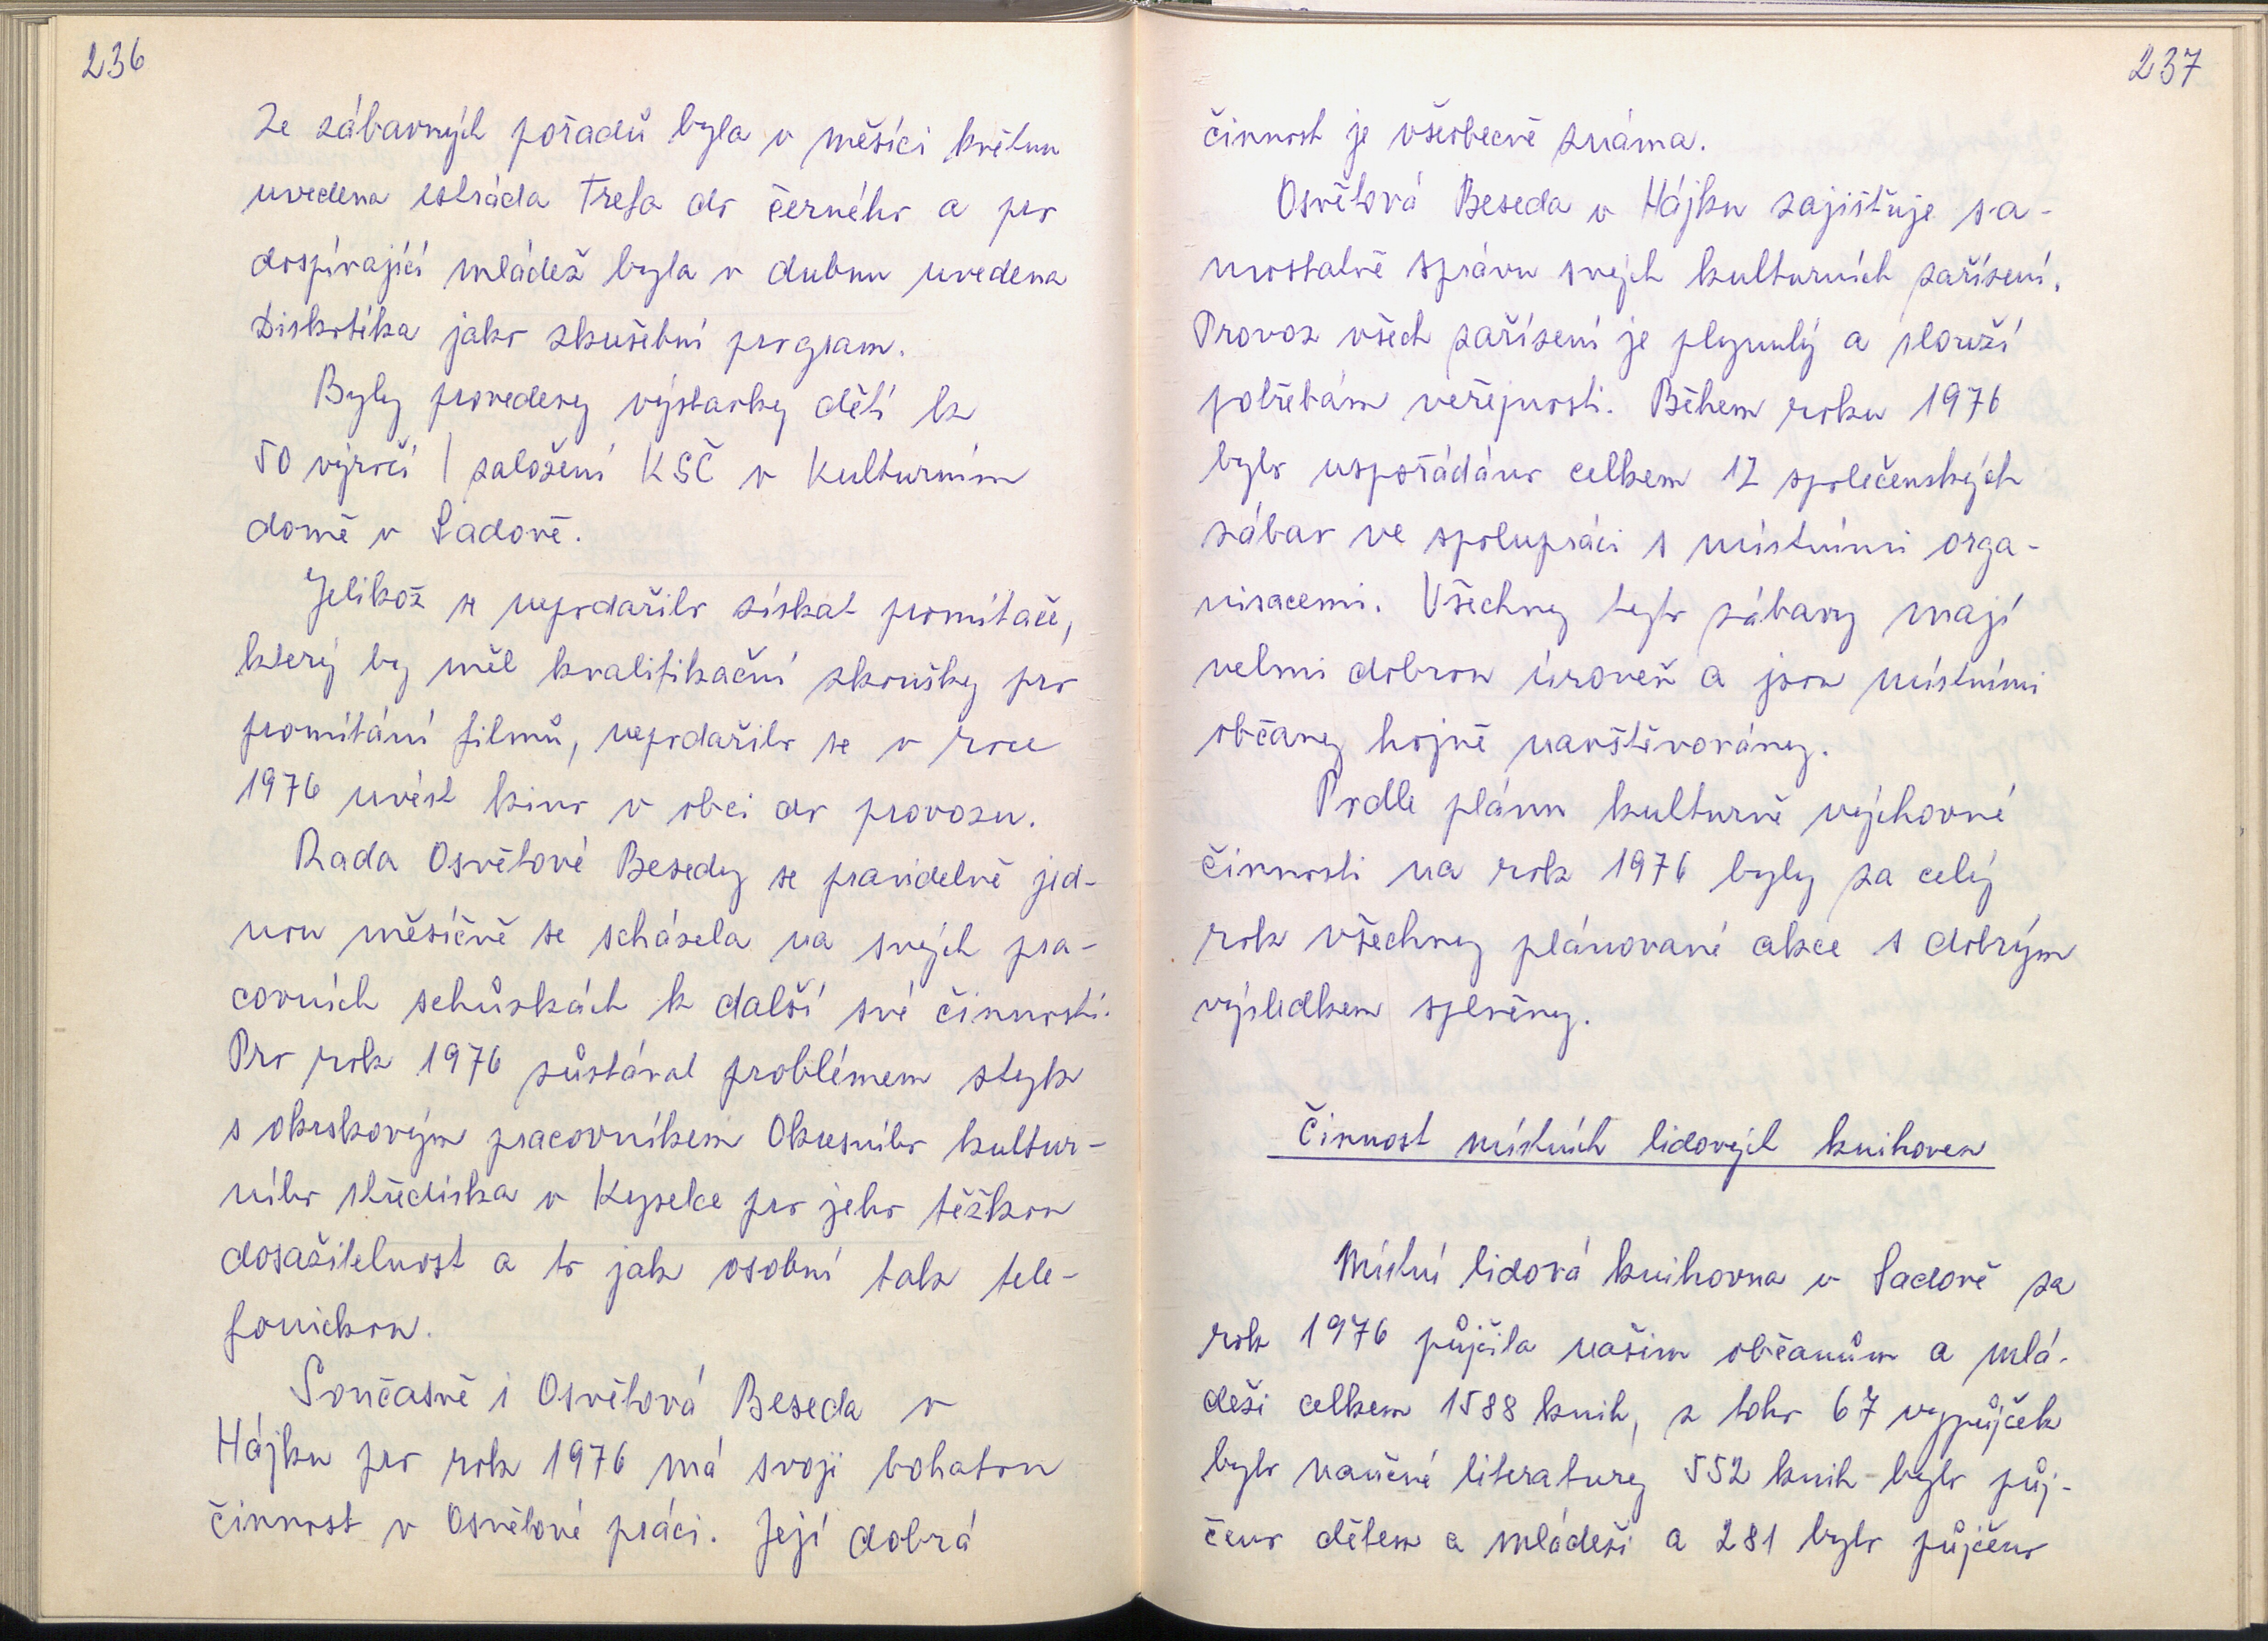 236
Ze zábavných pořadů byla v měsíci květnu
uvedena estráda Trefa do černého a pro
dospívající mládež byla v dubnu uvedena
Diskotéka jako zkušební program.
Byly provedeny výstavky dětí k
50 výročí / založení KSČ v Kulturním
domě v Sadově.
Jelikož se nepodařilo získat promítače,
který by měl kvalifikační zkoušky pro
promítání filmů, nepodařilo se v roce
1976 uvést kino v obci do provozu.
Rada Osvětové Besedy se pravidelně jed-
nou měsíčně se scházela na svých pra-
covních schůzkách k další své činnosti.
Pro rok 1976 zůstával problémem styk
s okrskovým pracovníkem Okresního kultur-
ního střediska v Kyselce pro jeho těžkou
dosažitelnost a to jak osobní tak tele-
fonickou.
Současně i Osvětová Beseda v
Hájku pro rok 1976 má svoji bohatou
činnost v Osvětové práci. Její dobrá
237
činnost je všeobecně známa.
Osvětová Beseda v Hájku zajišťuje sa-
mostatně správu svých kulturních zařízení.
Provoz všech zařízení je plynulý a slouží
potřebám veřejnosti. Během roku 1976
bylo uspořádáno celkem 12 společenských
zábav ve spolupráci s místními orga-
nizacemi. Všechny tyto zábavy mají
velmi dobrou úroveň a jsou místními
občany hojně navštěvovány.
Podle plánu kulturně výchovné
činnosti na rok 1976 byly za celý
rok všechny plánované akce s dobrým
výsledkem splněny.
Činnost místních lidových knihoven
Místní lidová knihovna v Sadově za
rok 1976 půjčila našim občanům a mlá-
deži celkem 1588 knih, z toho 67 vypůjček
bylo naučné literatury 552 knih bylo půj-
čeno dětem a mládeži a 281 bylo půjčeno